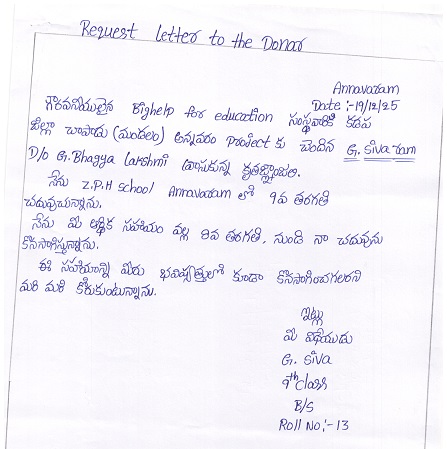 Request Letter to the Donar
Annavaram
Date :-19/12/25
గౌరవనీయులైన Bighelp for education సంస్థవారికి కడప
జిల్లా చాపాడు (మండలం) అన్నవరం project కు చెందిన G. Siva ram
D/o G. Bhagya Lakshmi వ్రాసుకున్న కృతజ్ఞతాంజలి.
నేను Z.P.H School Annavaram లో 9వ తరగతి
చదువుచున్నాను.
నేను మీ ఆర్థిక సహాయం వల్ల 8వ తరగతి, నుండి నా చదువును
కొనసాగిస్తున్నాను.
ఈ సహాయాన్ని మీరు భవిష్యత్తులో కూడా కొనసాగించగలరని
మరి మరి కోరుకుంటున్నాను.
ఇట్లు
మీ విధేయుడు
G. Siva
9th Class
B/S
Roll No:-13